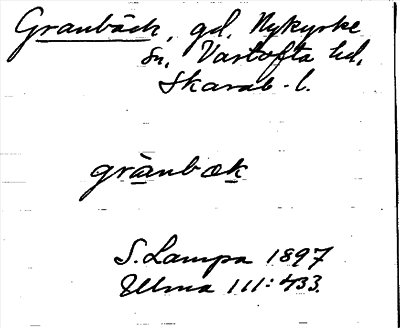 Granbäck, gd. Nykyrke
sn, Vartofta hd,
Skarab. l.
grànbæk
S. Lampa 1897
Ulma 111:433.